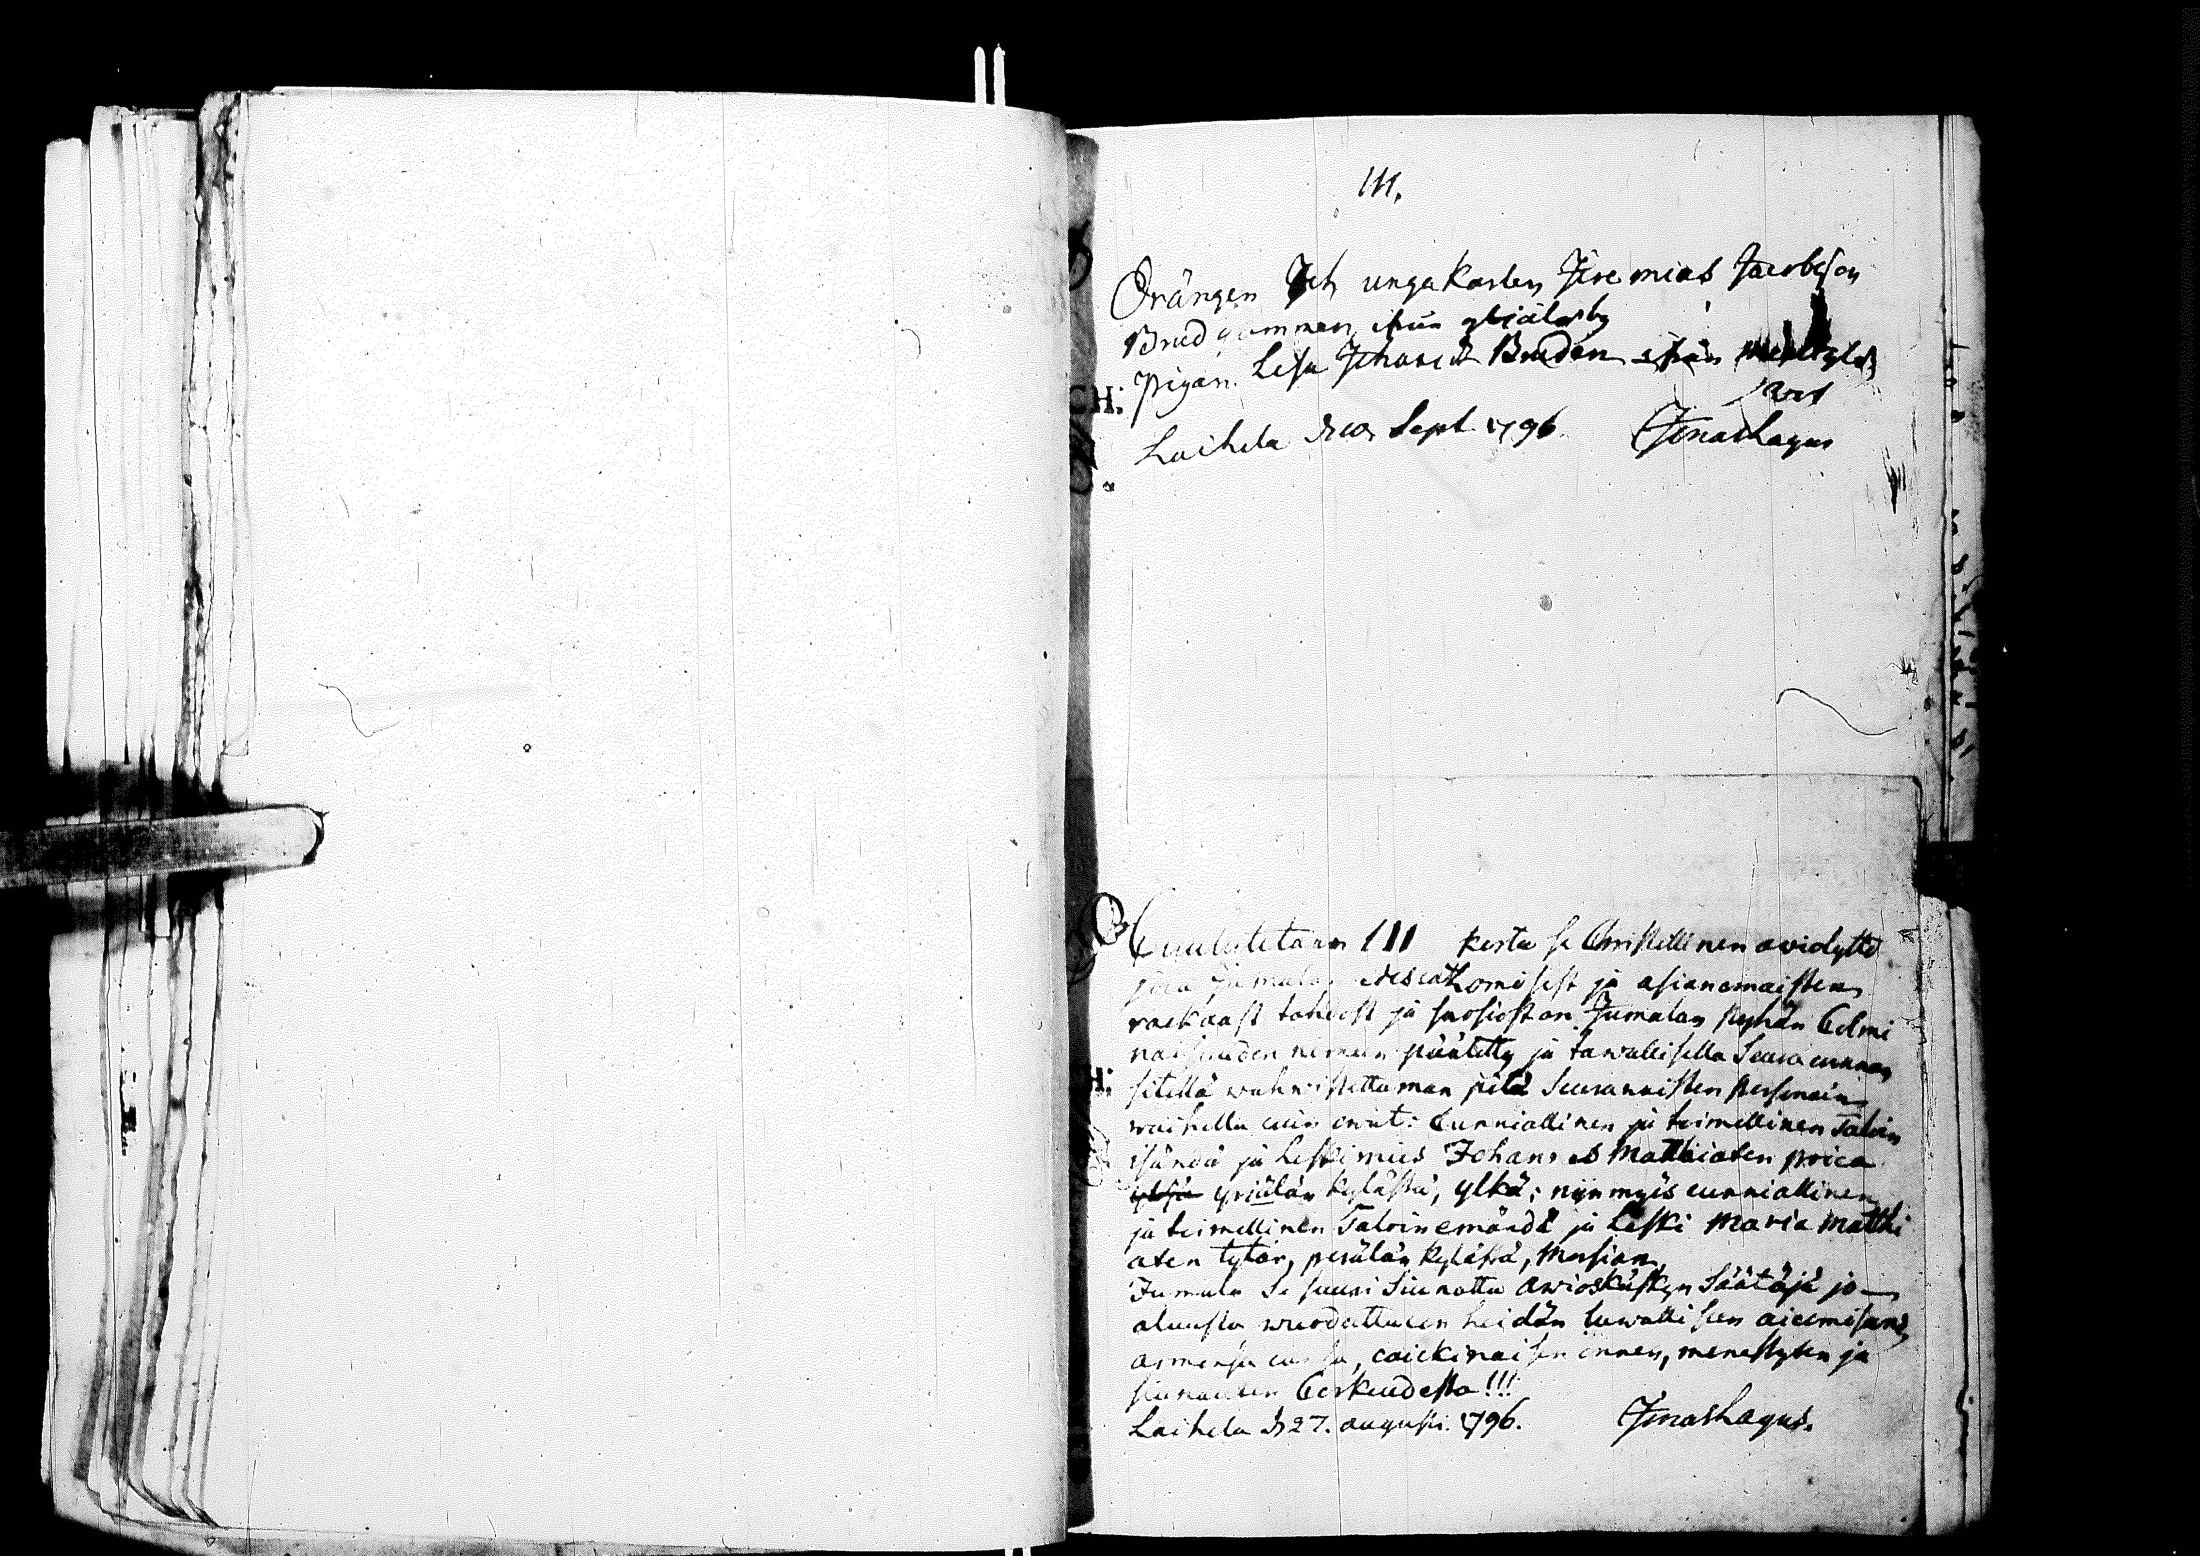 111.
Drängen och unga Karlen Jeremias Jacobsson
Brudgummen, ifrån yliälarby
Pigan. Lisa Johans dr Bruden ifrån
CH:
Laihela d 10 Sept. 1796. Jonas Lagus
Cuulutetaan 111 kerta se Christillinen awioliytto
joca Jumalan edescatzomisest ja asianomaisten
rackaast tahdost ja suosiost on Jumalan pyhän Colmi
naisuden nimeen päätetty ja tawallisella Seuracunnan
sitellä wahwistettaman pitä Seurawaisten Personain
waihella cuin owat: Cunniallinen ja toimellinen Talon
isändä ja Leskimies Johannes Matthiaxen poica
yriälän kylästä, ylkä; nijn myös cunniallinen
ja toimellinen Talon emändä ja Leski Maria Matthi
axen tytär, perälän kylästä, Morsian,
Jumala Se suuri Siunattu Awioskäskyn Säätäjä jo
alusta, wuodattacon heidän luwallisen aicomisens
armonsa cansa, caickinaisen onnen, menestyxen ja
siunauxen Corkeudesta!!!
Laihela d 27. augusti. 1796. Jonas Lagus.